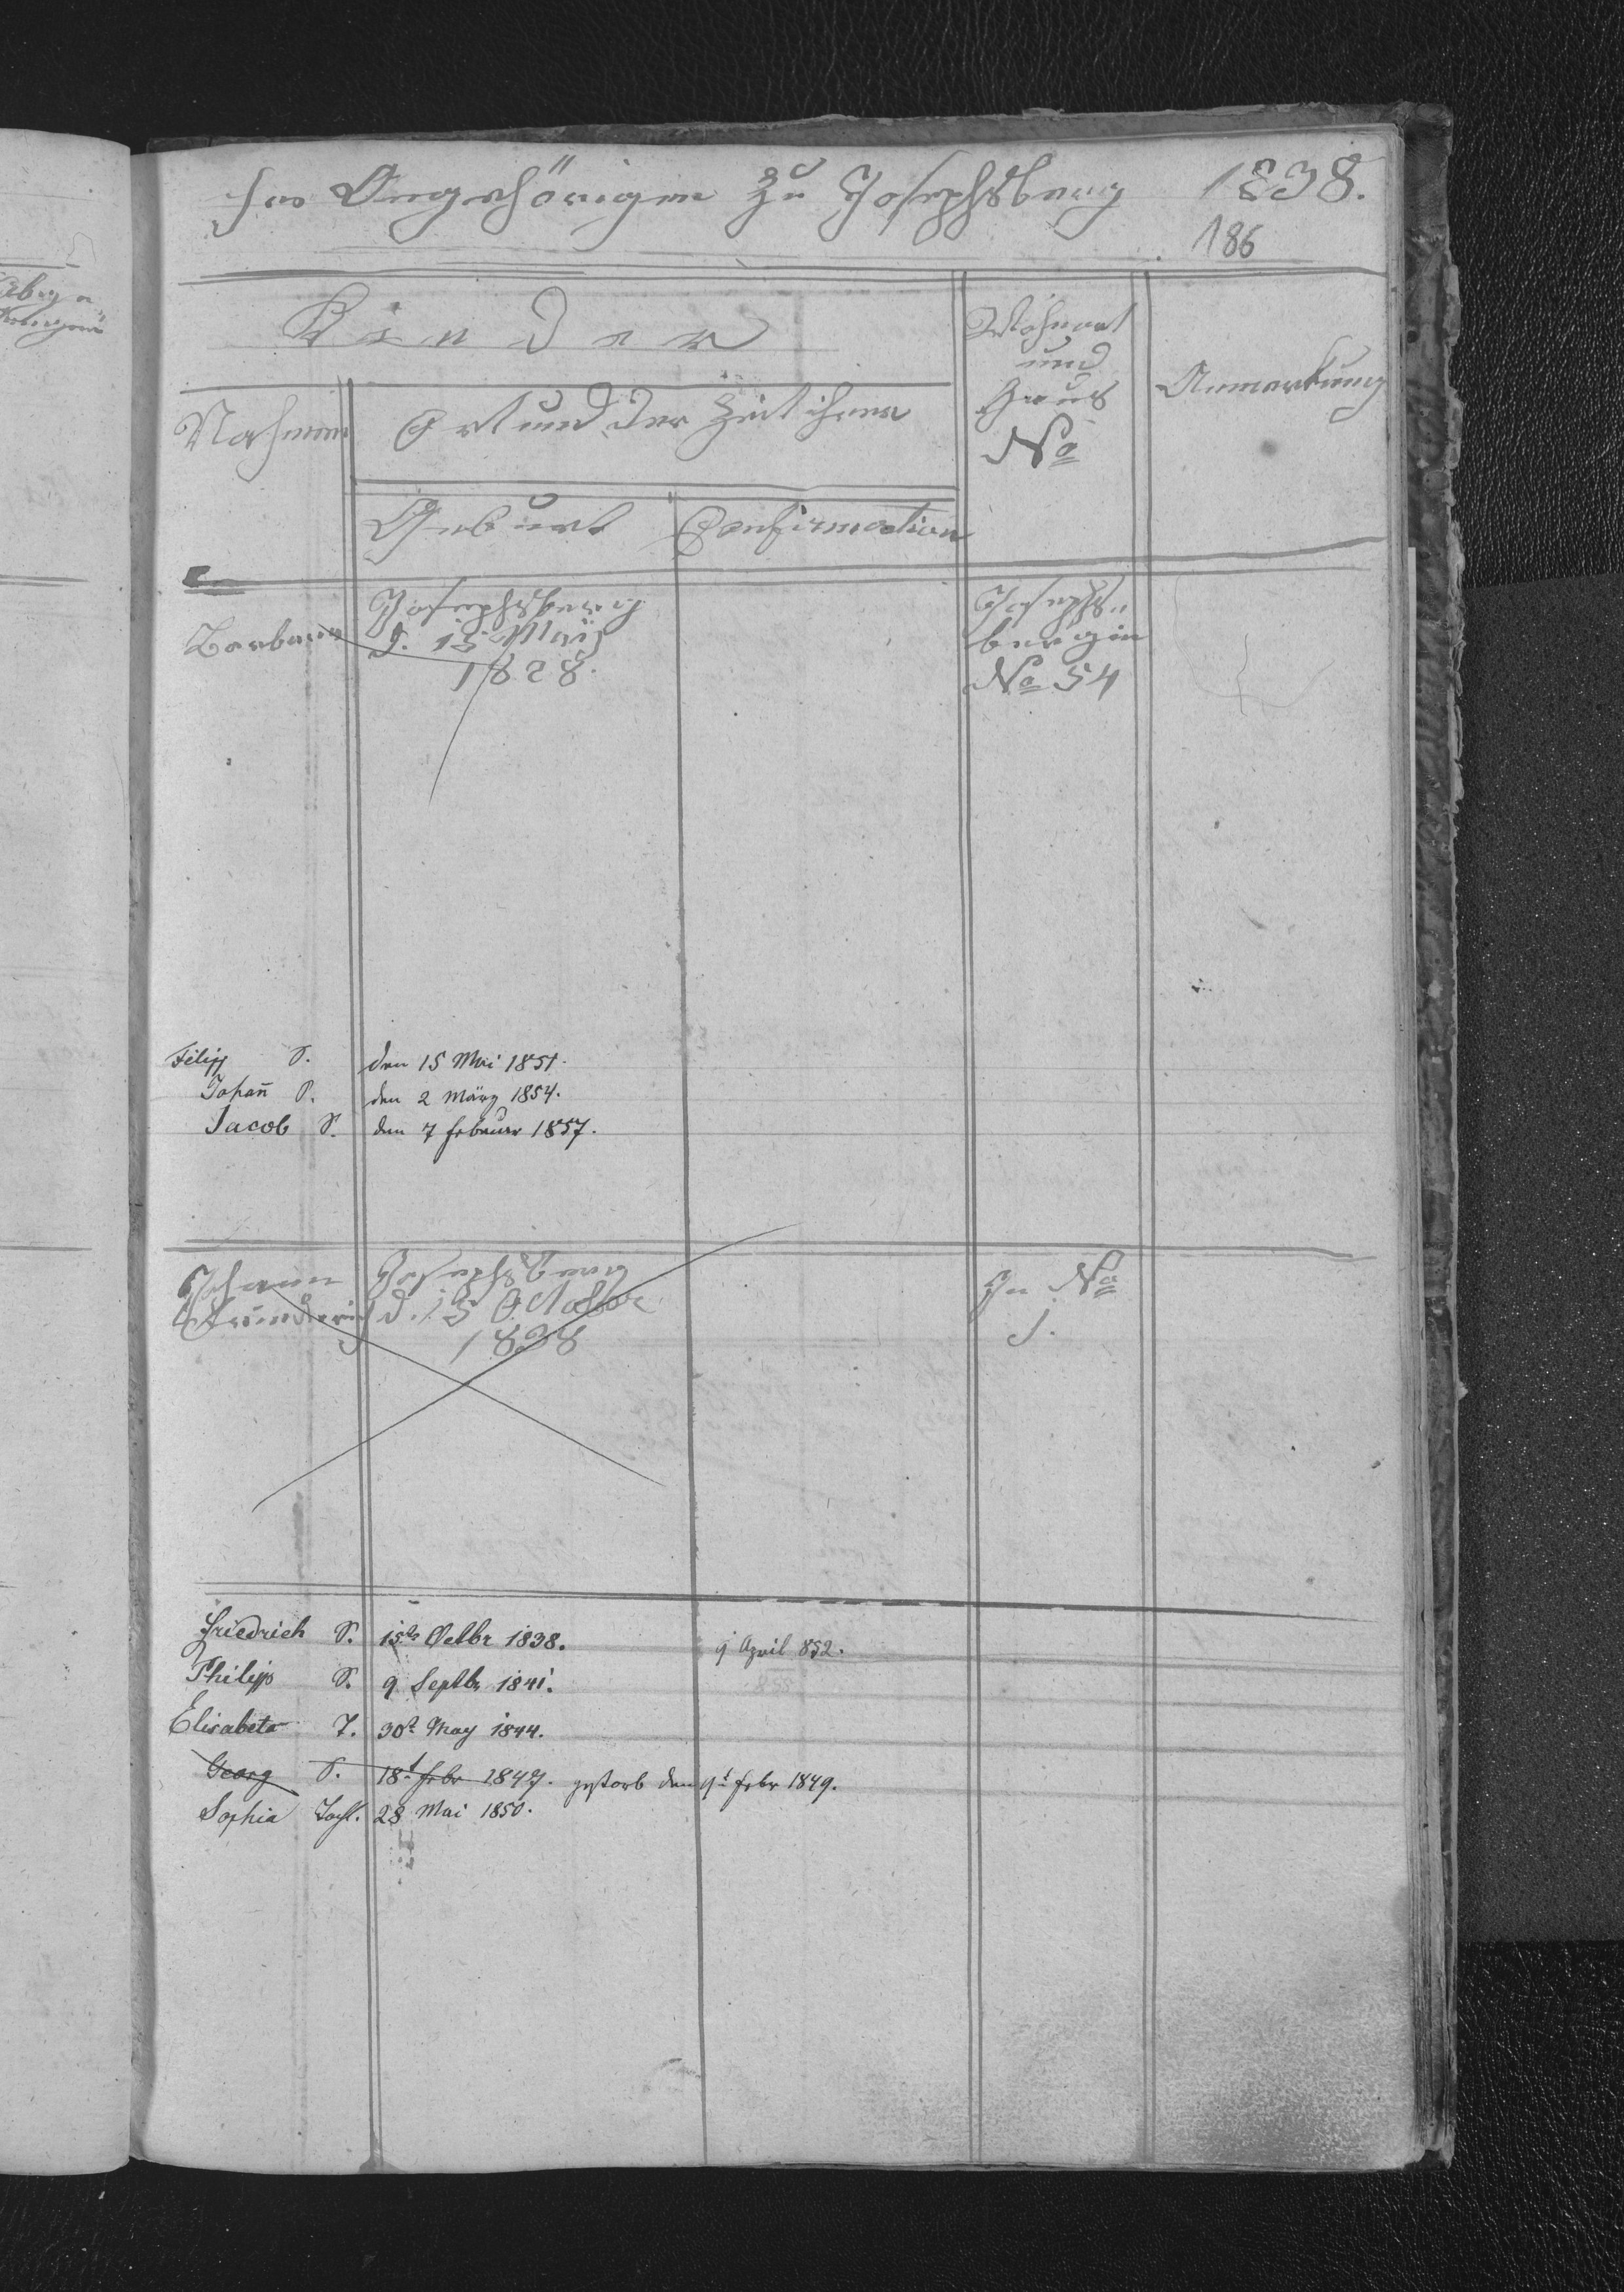 Angehörigen zu Josephsberg 1838.
186
Kinder
Nahmen
Ort und der Zeit ihrer
Geburt
Confirmation
Wohnort
und
Haus
No
Anmerkung
Barbara
Josephsberg
d. 15 Maÿ
1828.
Josephs-
berg in
No 54
Filipp S. den 15 Mai 1851.
Johañ S. den 2 März 1854.
Jacob S. den 7 Februar 1857.
Johann
Friedrich
Josephsberg
d. 15 October
1838
In No
1.
Friedrich S. 15t Octbr 1838. 9 April 852.
Philipp S. 9 Septbr 1841.
Elisabeta T. 30t May 1844.
Georg S. 18t Febr 1847. gestorb den 9t Febr 1849.
Sophia Tocht. 28 Mai 1850.